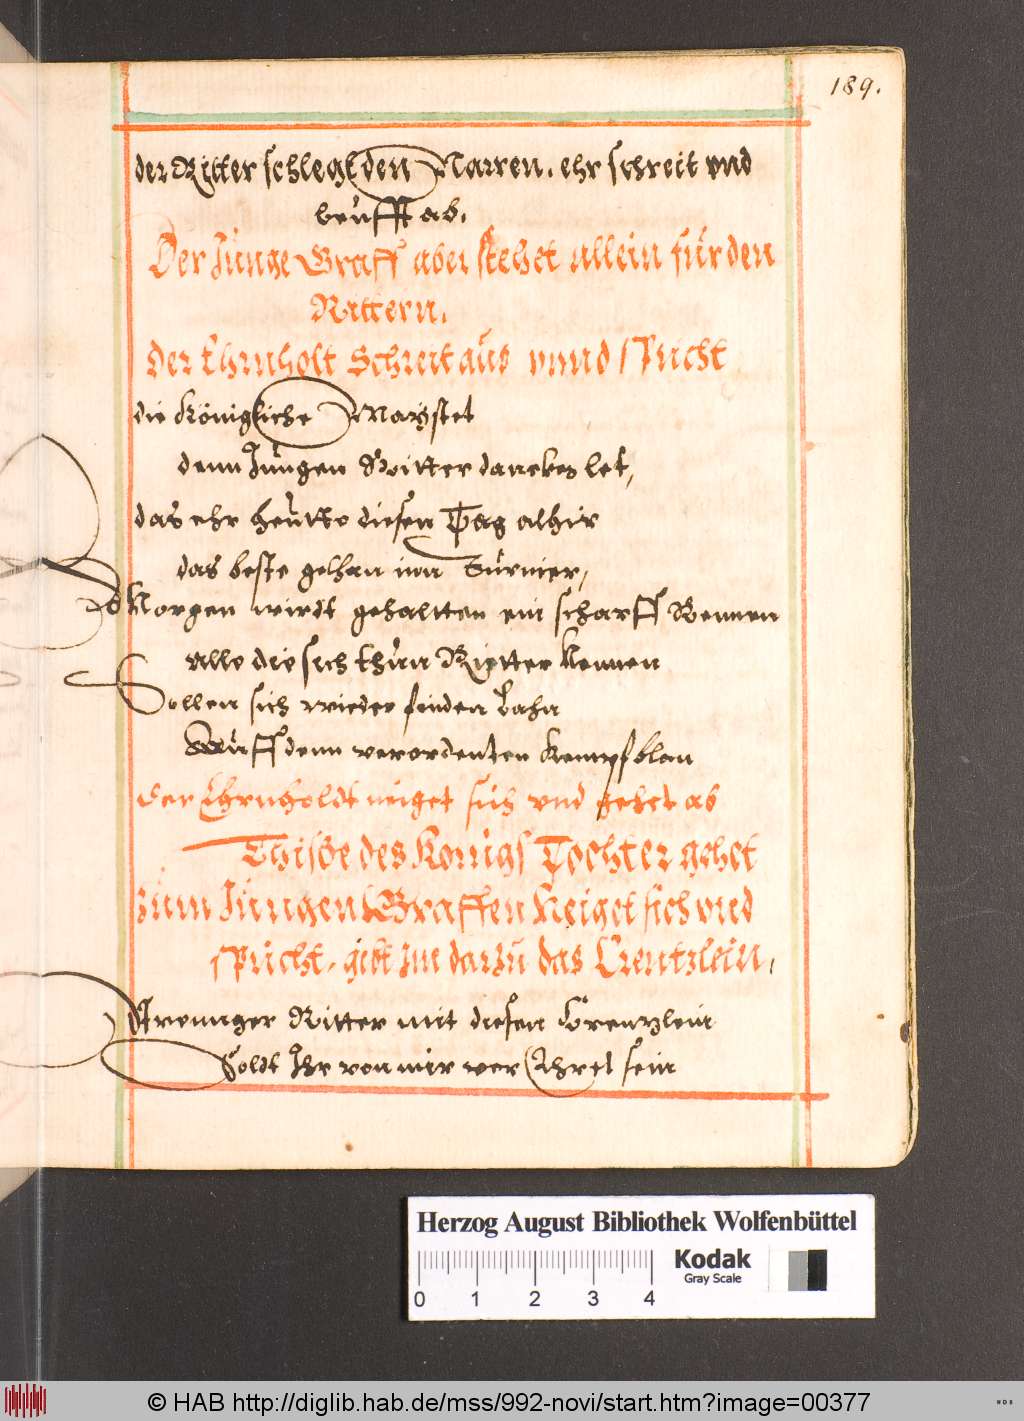 189.
der Ritter schlegt den Narren. ehr schreit vnd
leufft ab.
Der Junge Graff aber stehet allein für den
Rittern.
Der Ehrnholt Schreit aus vnnd spricht
die Königliche Maystet
denn Jungen Ritter danckes let,
das ehr heutte diesen Tag alhir
das beste gethan inn Turnier,
Morgen wirdt gehaltten ein scharff Rennen
Alle die sich thun Rietter kennen
Sollen sich wieder finden lahn
Auff denn verordenten Kampfblan
der Ehrnholdt neiget sich vnd gehet ab
Thisbe des Königs Tochter gehet
zum Jungen Graffen Neiget sich vnd
spricht. gibt Im darzu das Crentzlein,
Strennger Ritter mit diesen Crentzlein
Soldt Ihr von mir ver Ehret sein
Herzog August Bibliothek Wolfenbüttel
Kodak
Gray Scale
0 1 2 3 4
© HAB http://diglib.hab.de/mss/992-novi/start.htm?image=00377